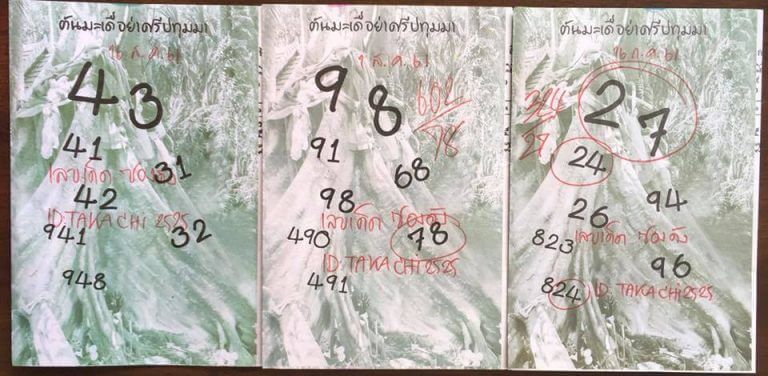 ต้นมะเดื่อย่าศรีปทุมมา
16 ส.ค. 61
43
41
31
เลขเด็ด ซองดัง
42
ID:TAKACHI 2525
941
32
948
ต้นมะเดื่อย่าศรีปทุมมา
1 ส.ค. 61
98
602
78
91
68
98
เลขเด็ด ซองดัง
490
78
ID:TAKACHI2525
491
ต้นมะเดื่อย่าศรีปทุมมา
16 ก.ค. 61
27
324
27
24
26
94
823
เลขเด็ด ซองดัง
96
824
ID:TAKACHI2525